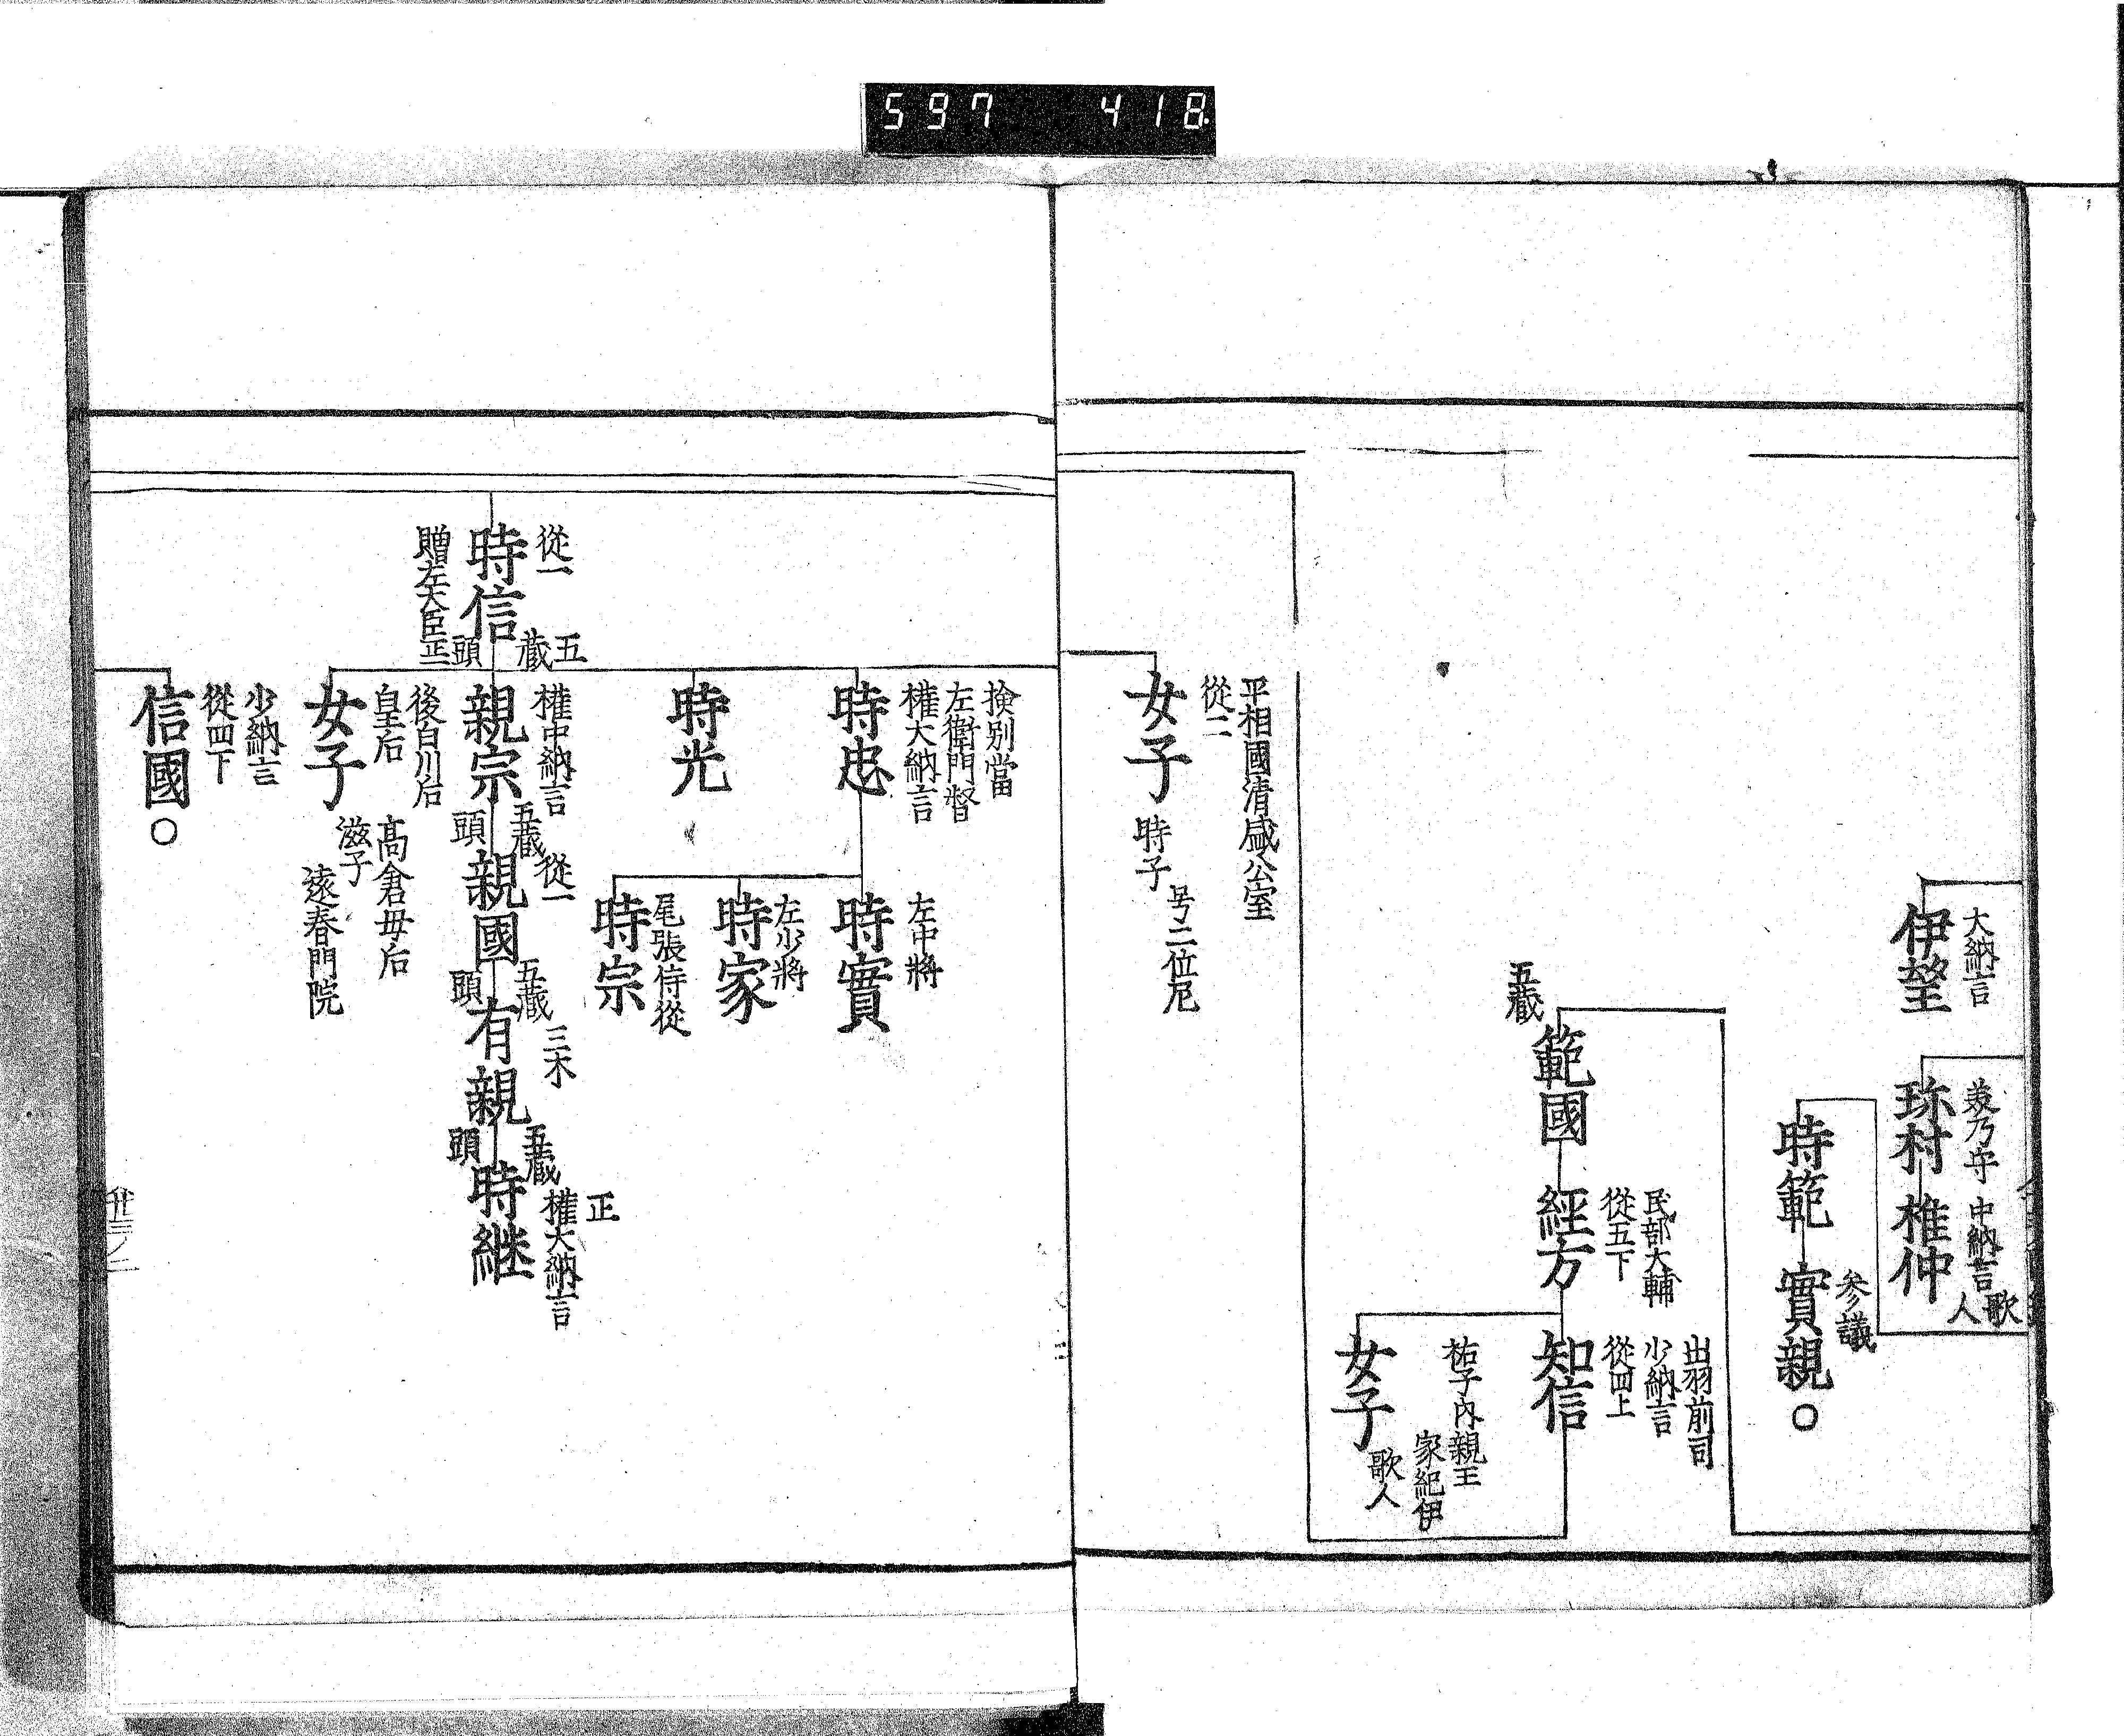 597 418
大納言
伊望
美乃守
珎材
中納言
歌人
惟仲
時範
参議
實親〇
五蔵
範國
民部大輔
從五下
經方
出羽前司
少納言
從四上
知信
祐子内親王
家紀伊
女子
歌人
平相國清盛公室
從二
女子
時子
号二位尼
撿別當
左衛門督
権大納言
時忠
左中將
時實
左少將
時家
尾張侍從
時宗
時光
從一
時信
贈左大臣正一
五蔵
頭
権中納言
親宗
五蔵
頭
從一
親國
五蔵
頭
三木
有親
五蔵
頭
正
権大納言
時継
後白川后
皇后
女子
高倉母后
滋子
遠春門院
少納言
從四下
信國〇